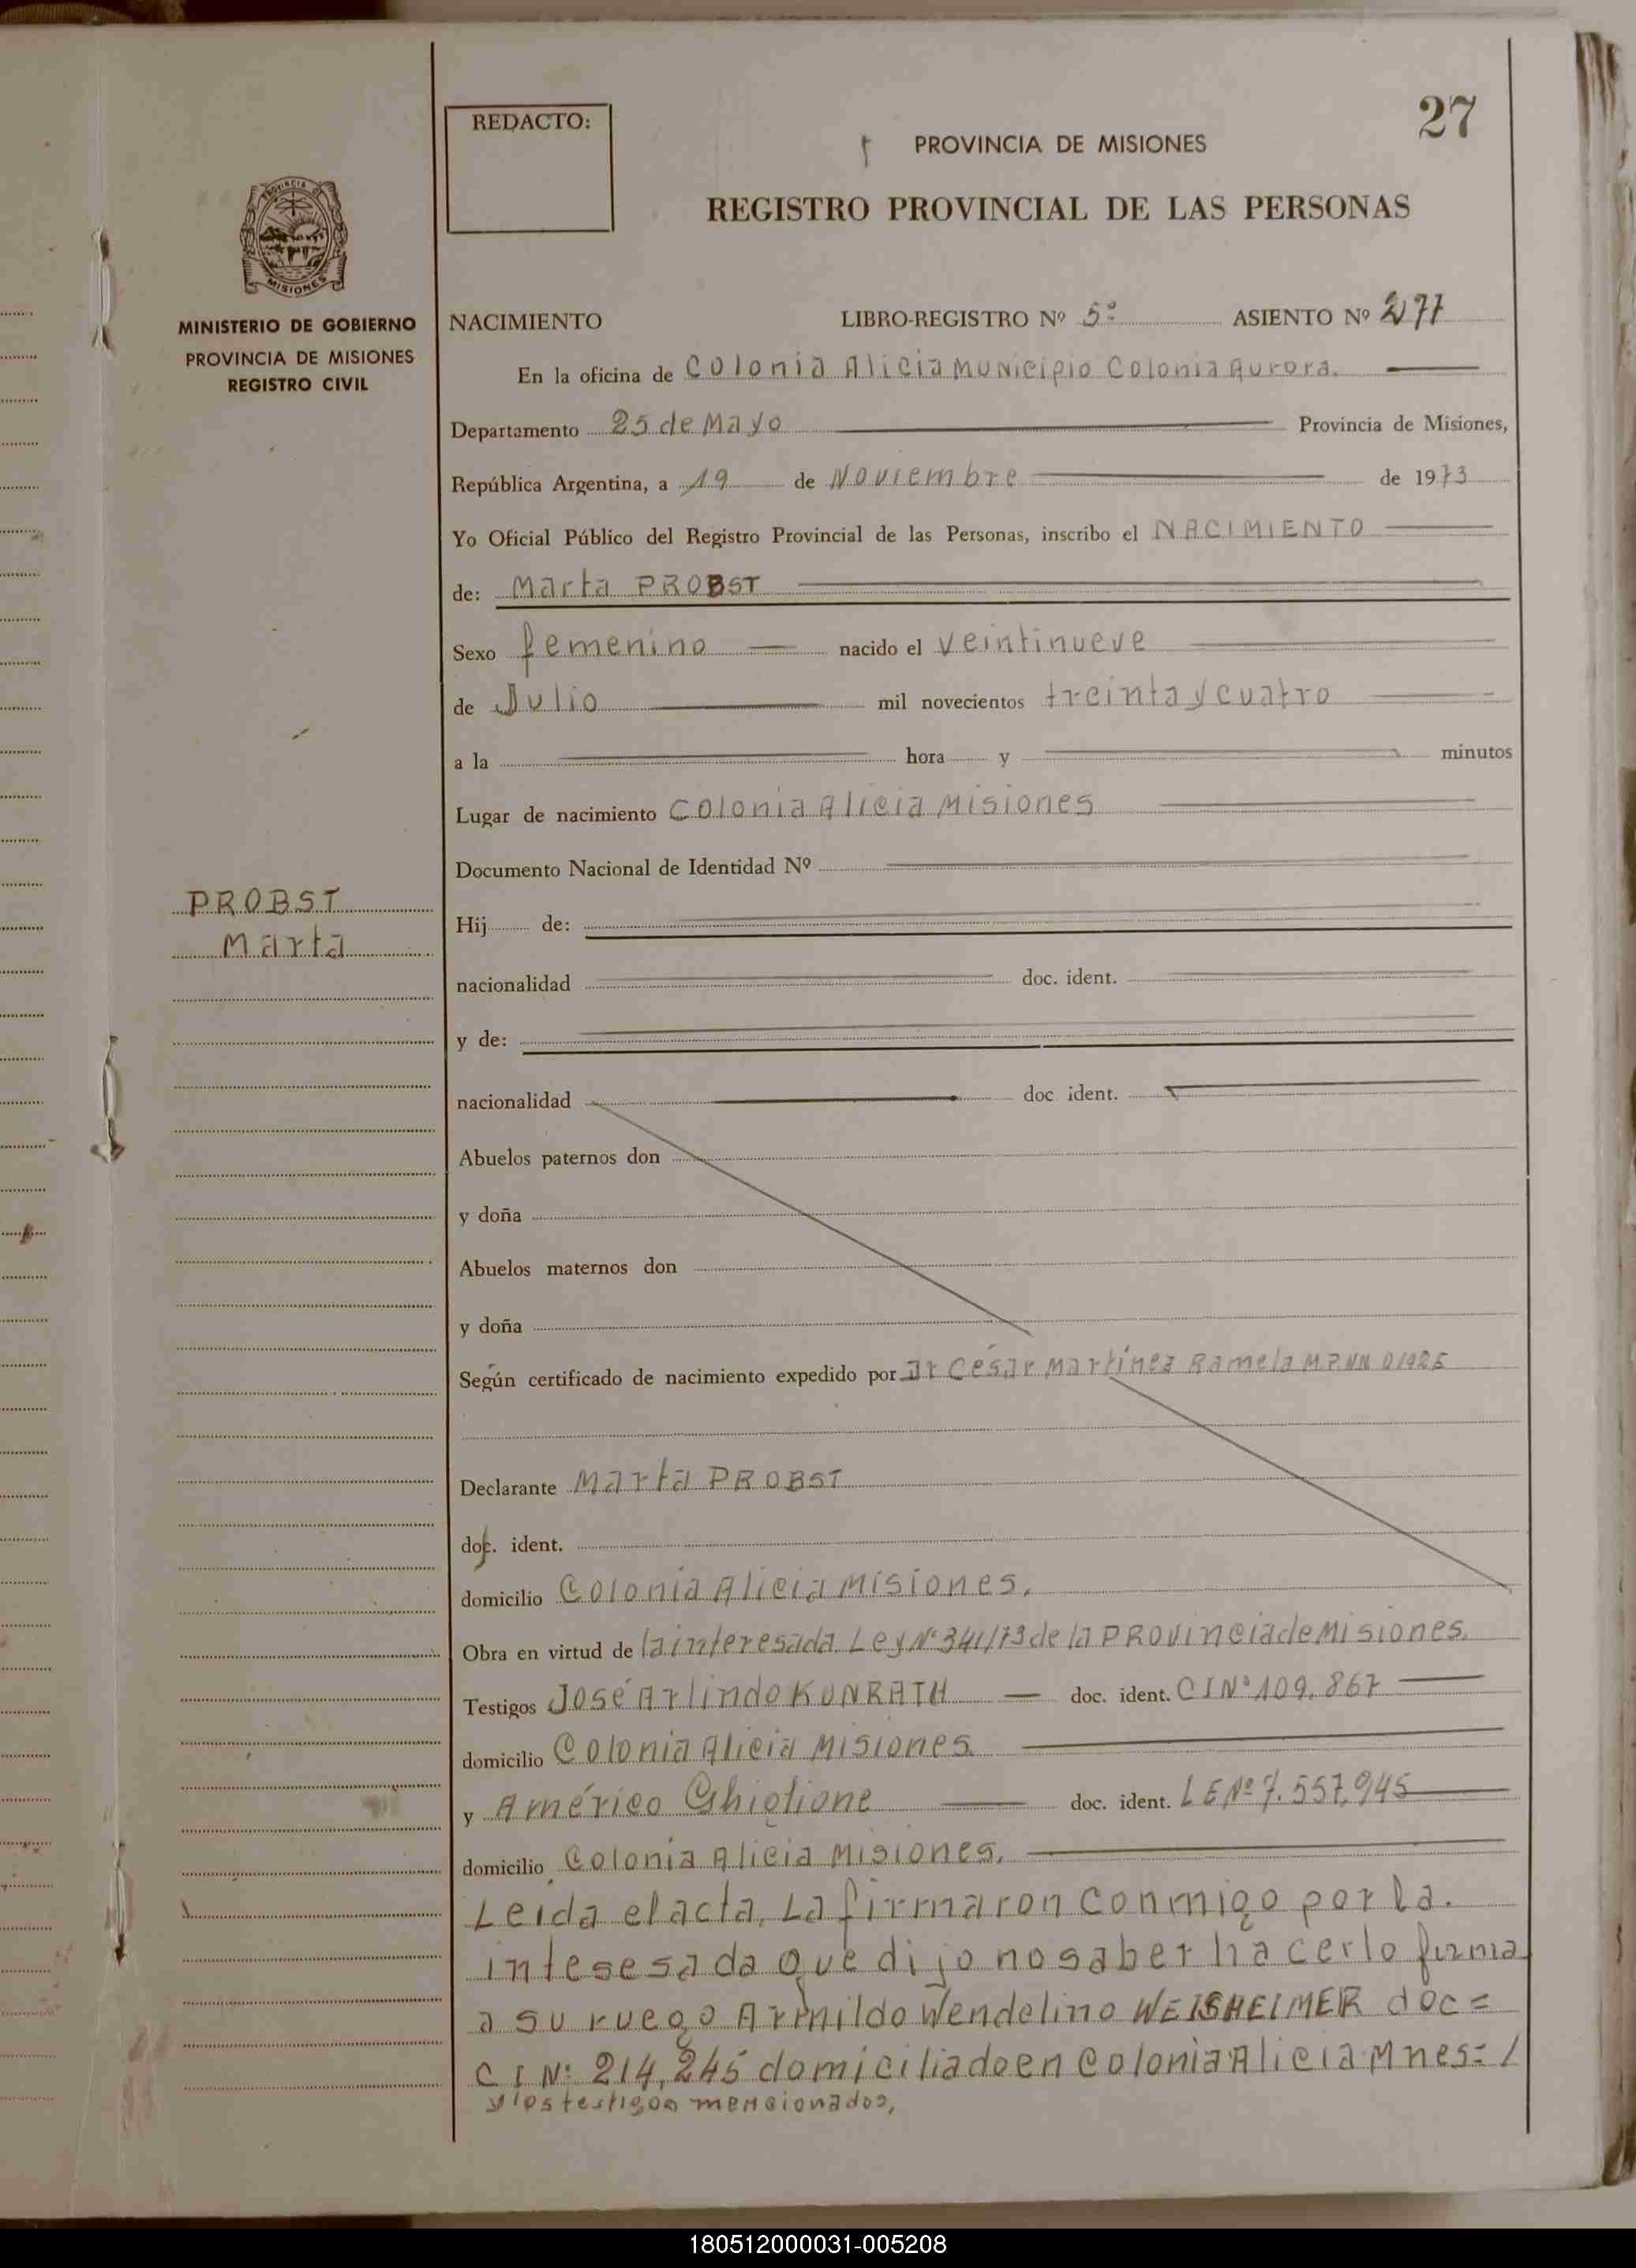 27
REDACTO:
PROVINCIA DE MISIONES
REGISTRO PROVINCIAL DE LAS PERSONAS
PROVINCIA DE
MISIONES
MINISTERIO DE GOBIERNO
PROVINCIA DE MISIONES
REGISTRO CIVIL
NACIMIENTO LIBRO-REGISTRO Nº 5º ASIENTO Nº 277
En la oficina de Colonia Alicia Municipio Colonia Aurora.
Departamento 25 de Mayo Provincia de Misiones,
República Argentina, a 19 de Noviembre de 1973
Yo Oficial Público del Registro Provincial de las Personas, inscribo el NACIMIENTO
de: Marta PROBST
Sexo femenino nacido el veintinueve
de Julio mil novecientos treinta y cuatro
a la hora y minutos
Lugar de nacimiento Colonia Alicia Misiones
Documento Nacional de Identidad Nº
PROBST
Marta
Hij de:
nacionalidad doc. ident.
y de:
nacionalidad doc ident.
Abuelos paternos don
y doña
Abuelos maternos don
y doña
Según certificado de nacimiento expedido por Dr César Martínez Ramela
Declarante Marta PROBST
doc. ident.
domicilio Colonia Alicia Misiones.
Obra en virtud de la interesada Ley Nº 341/73 de la PROVincia de Misiones.
Testigos José Arlindo KUNRATH doc. ident. CI Nº 109.867
domicilio Colonia Alicia Misiones
y Américo Ghiglione doc. ident. LE Nº 7.557.945
domicilio Colonia Alicia Misiones.
Leida el acta, La firmaron conmigo por la.
intesesada que dijo no saber hacerlo firma
a su ruego Armildo Wendelino WEISHEIMER doc=
C I N: 214,245 domiciliado en Colonia Alicia Mnes= /
y los testigos mencionados,
180512000031-005208